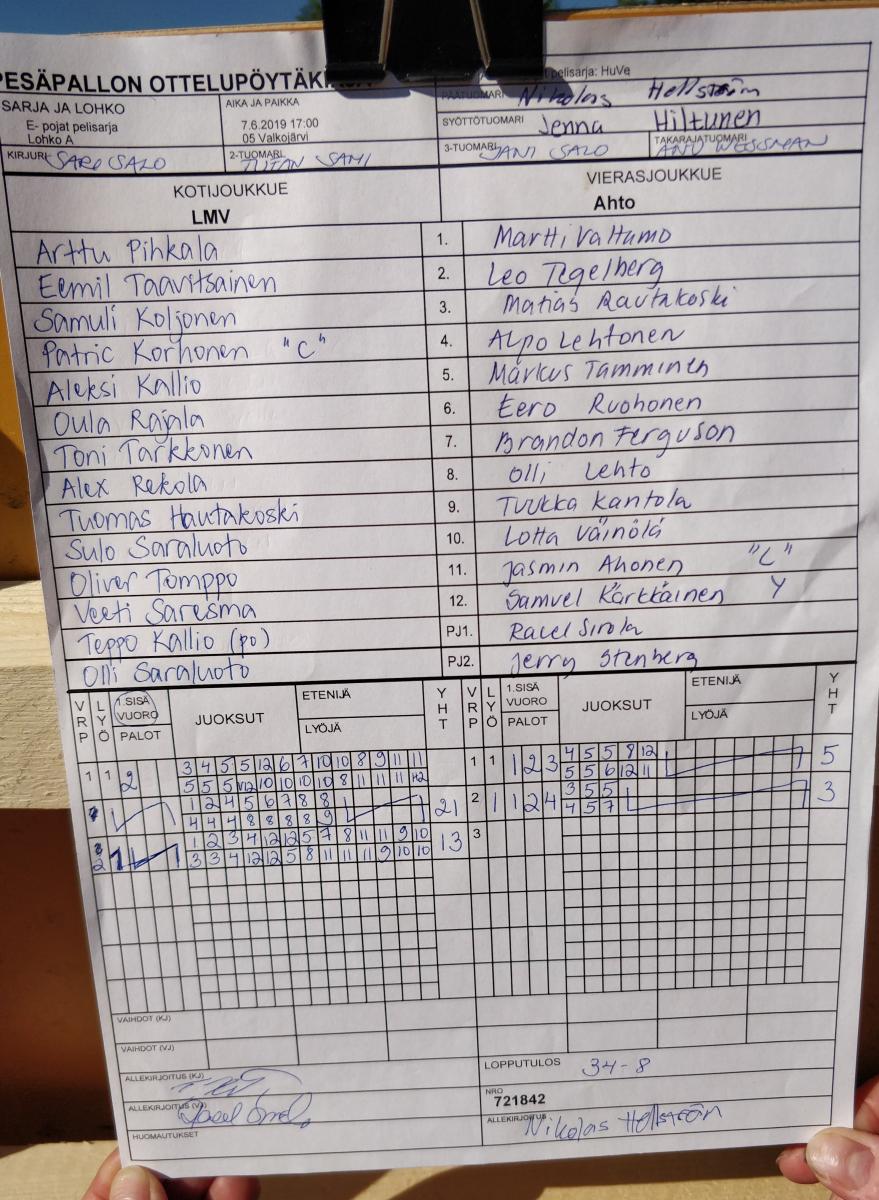 PESÄPALLON OTTELUPÖYTÄK
pelisarja: HuVe
SARJA JA LOHKO
E- pojat pelisarja
Lohko A
AIKA JA PAIKKA
7.6.2019 17:00
05 Valkojärvi
PÄÄTUOMARI Nikolas Hellström
SYÖTTÖTUOMARI Jenna Hiltunen
KIRJURI SARI SALO
2-TUOMARI SAMI
3-TUOMARI JANI SALO
TAKARAJATUOMARI ANU WESSMAN
KOTIJOUKKUE
LMV
VIERASJOUKKUE
Ahto
Arttu Pihkala 1. Martti Valtamo
Eemil Taavitsainen 2. Leo Tegelberg
Samuli Koljonen 3. Matias Rautakoski
Patric Korhonen "C" 4. Alpo Lehtonen
Aleksi Kallio 5. Markus Tamminen
Oula Rajala 6. Eero Ruohonen
Toni Tarkkonen 7. Brandon Ferguson
Alex Rekola 8. Olli Lehto
Tuomas Hautakoski 9. Tuukka Kantola
Sulo Saraluoto 10. Lotta Väinölä
Oliver Tomppo 11. Jasmin Ahonen "C"
Veeti Saresma 12. Samuel Kärkkäinen Y
Teppo Kallio (po) PJ1. Racel Sirola
Olli Saraluoto PJ2. Jerry Stenberg
VRP LYÖ 1.SISÄ VUORO PALOT JUOKSUT ETENIJÄ LYÖJÄ YHT VRP LYÖ 1.SISÄ VUORO PALOT JUOKSUT ETENIJÄ LYÖJÄ YHT
3 4 5 5 12 6 7 10 10 8 9 11 11
1 1 2
5 5 5 12 10 10 10 10 8 11 11 11 12
1 2 4 5 6 7 8 8
21
4 4 4 8 8 8 8 9
1 2 3 4 12 12 5 7 8 11 11 9 10
2 13
3 3 4 12 12 5 8 11 11 11 9 10 10
4 5 5 8 12
1 1 1 2 3 5
5 5 6 12 11
3 5 5
2 1 1 2 4 3
4 5 7
3
VAIHDOT (KJ)
VAIHDOT (VJ)
ALLEKIRJOITUS (KJ)
LOPPUTULOS 34-8
ALLEKIRJOITUS (VJ)
NRO
721842
HUOMAUTUKSET
ALLEKIRJOITUS Nikolas Hellström